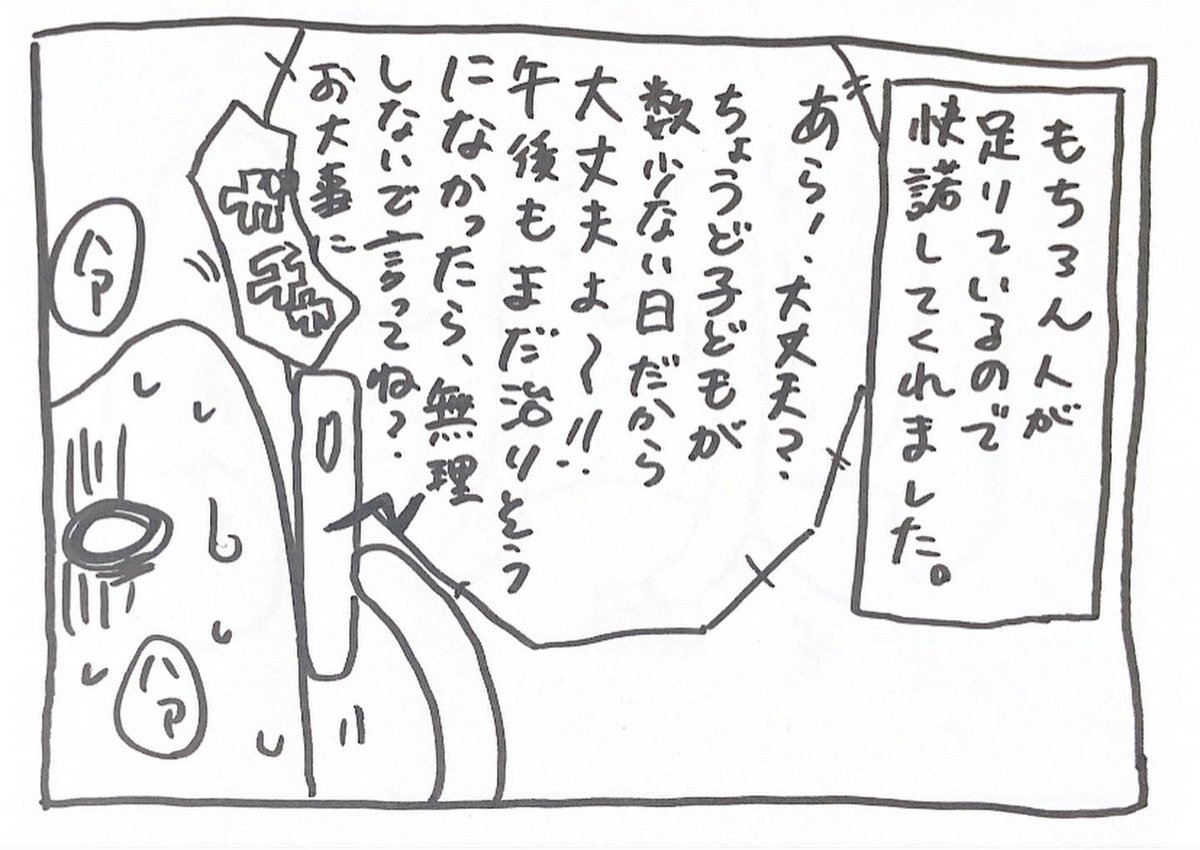 もちろん人が
足りているので
快諾してくれました。
あら!大丈夫?
ちょうど子どもが
数少ない日だから
大丈夫よ〜!!
午後もまだ治りそう
になかったら、無理
しないで言ってね?
お大事に
ハァ
ハァ